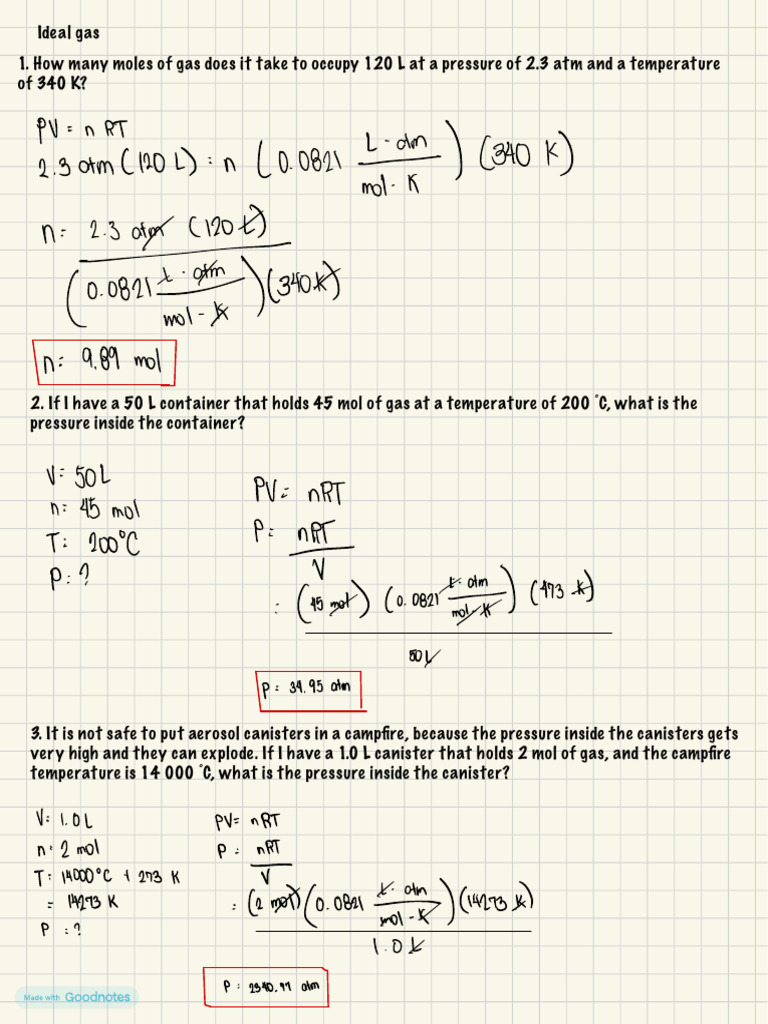 Ideal gas
1. How many moles of gas does it take to occupy 120 L at a pressure of 2.3 atm and a temperature
of 340 K?
PV = n RT
2.3 atm (120 L) = n (0.0821 L · atm / mol · K) (340 K)
n = 2.3 atm (120 L)
(0.0821 L · atm / mol - K) (340 K)
n = 9.89 mol
2. If I have a 50 L container that holds 45 mol of gas at a temperature of 200 °C, what is the
pressure inside the container?
V = 50 L
n = 45 mol
T = 200°C
P = ?
PV = nRT
P = nRT / V
= (45 mol) (0.0821 L · atm / mol - K) (473 K)
50 L
P = 34.95 atm
3. It is not safe to put aerosol canisters in a campfire, because the pressure inside the canisters gets
very high and they can explode. If I have a 1.0 L canister that holds 2 mol of gas, and the campfire
temperature is 14 000 °C, what is the pressure inside the canister?
V = 1.0 L
n = 2 mol
T = 14000°C + 273 K
= 14273 K
P = ?
PV = nRT
P = nRT / V
= (2 mol) (0.0821 L · atm / mol - K) (14273 K)
1.0 L
P = atm
Made with Goodnotes